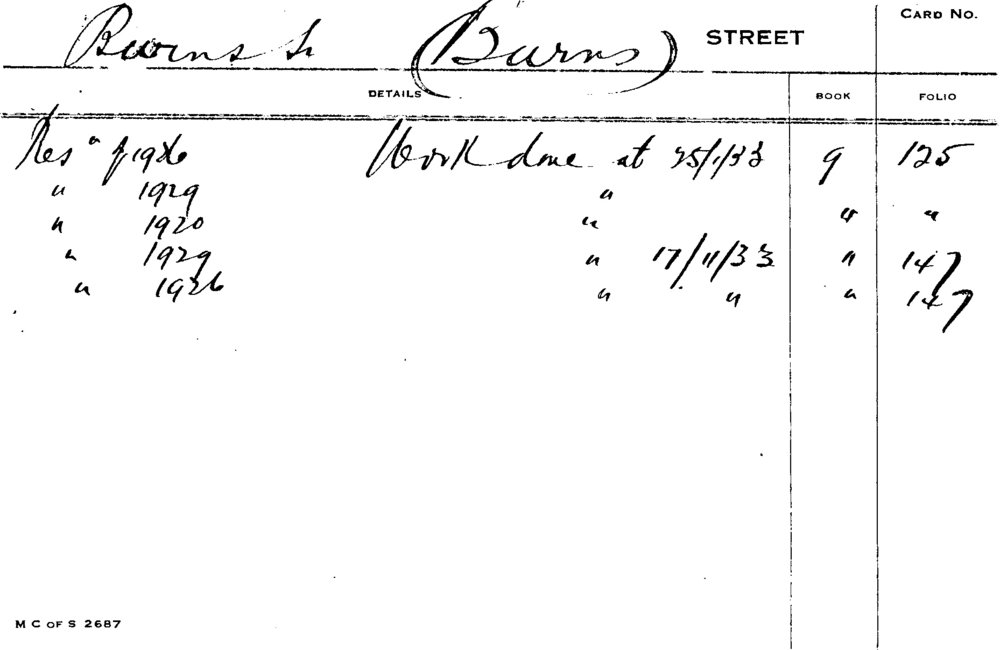 Burns St (Burns) STREET CARD No.
DETAILS BOOK FOLIO
Resn of 1926 Work done at 25/1/33 9 125
" 1929 "
" 1920 " " "
" 1929 " 17/11/33 " 147
" 1926 " " " 147
M C OF S 2687